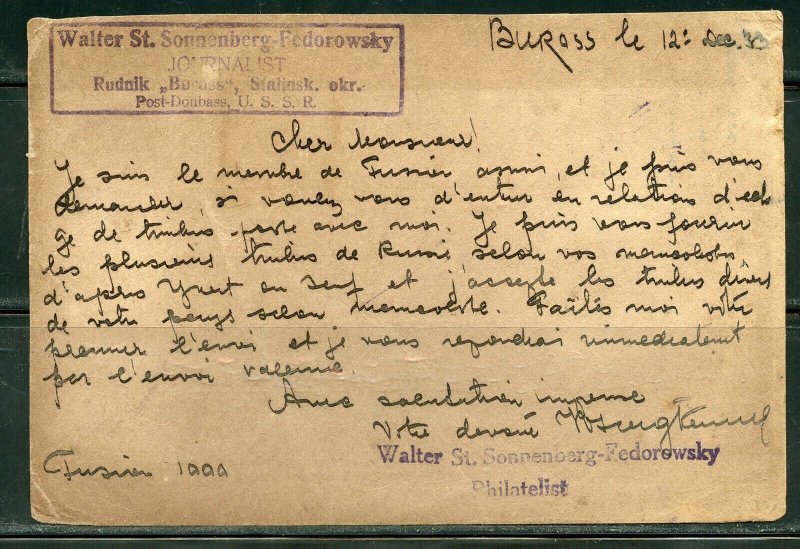 Walter St. Sonnenberg-Fedorowsky
JOURNALIST
Rudnik „Buross“, Stalinsk. okr.
Post-Donbass, U. S. S. R.
BUROSS le 12: Dec.
Cher Monsieur!
Je suis le membre de et je puis vous
demander, si voulez vous d'entrer en relations d'echan
ge de timbres poste avec moi. Je puis vous fournir
les plusieurs timbres de Russie selon vos mancolistes
d'apres Yvert ou Senf et j'accepte les timbres divers
de votre pays selon mancoliste. Faites moi votre
premier l'envoi et je vous repondrai immediatement
par l'envoi
Avec salutation
Votre devoué
Walter St. Sonnenberg-Fedorowsky
Philatelist